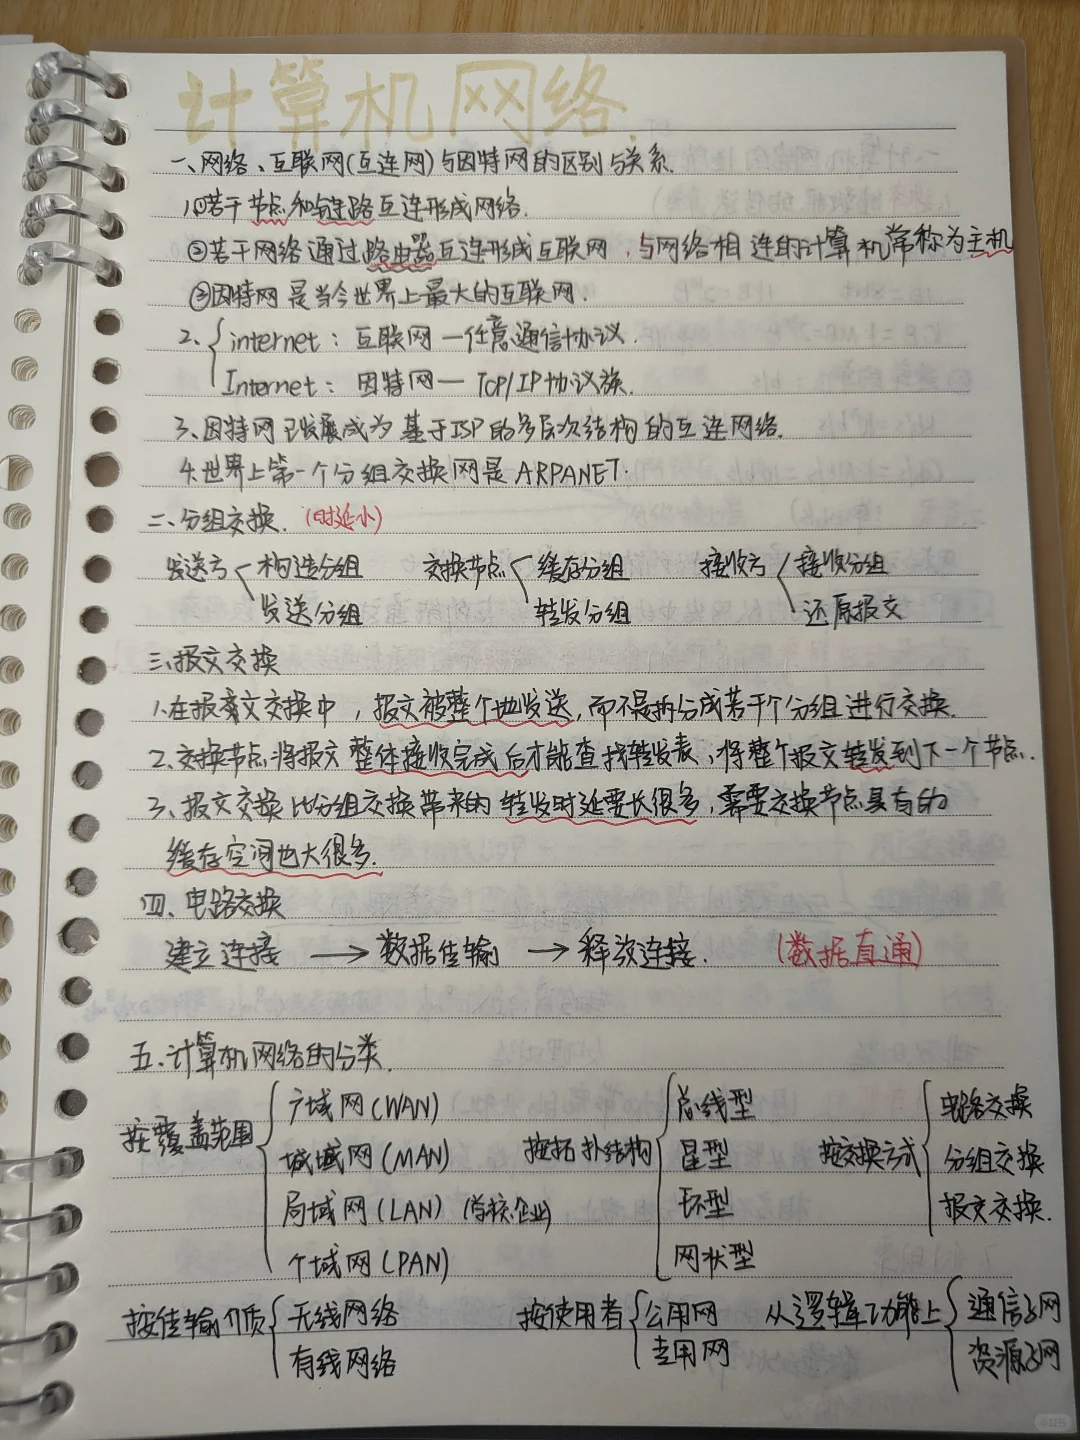 计算机网络.
一、网络、互联网(互连网)与因特网的区别与关系.
1.①若干节点和链路互连形成网络.
②若干网络通过路由器互连形成互联网,与网络相连的计算机常称为主机
③因特网是当今世界上最大的互联网.
2.{internet: 互联网—任意通信协议.
Internet: 因特网— TCP/IP协议族.
3、因特网已发展成为基于ISP的多层次结构的互连网络.
4.世界上第一个分组交换网是ARPANET.
二、分组交换.(时延小)
发送方 构造分组 交换节点 缓存分组 接收方 接收分组
发送分组 转发分组 还原报文
三、报文交换
1.在报文交换中,报文被整个地发送,而不是拆分成若干个分组进行交换.
2.交换节点将报文整体接收完成后才能查找转发表,将整个报文转发到下一个节点.
3、报文交换比分组交换带来的转发时延要长很多,需要交换节点具有的
缓存空间也大很多.
四、电路交换
建立连接 → 数据传输 → 释放连接. (数据直通)
五.计算机网络的分类.
按覆盖范围 广域网(WAN) 按拓扑结构 总线型 按交换方式 电路交换
城域网(MAN) 星型 分组交换
局域网(LAN) (学校企业) 环型 报文交换.
个域网(PAN) 网状型
按传输介质 无线网络 按使用者 公用网 从逻辑功能上 通信子网
有线网络 专用网 资源子网
小红书